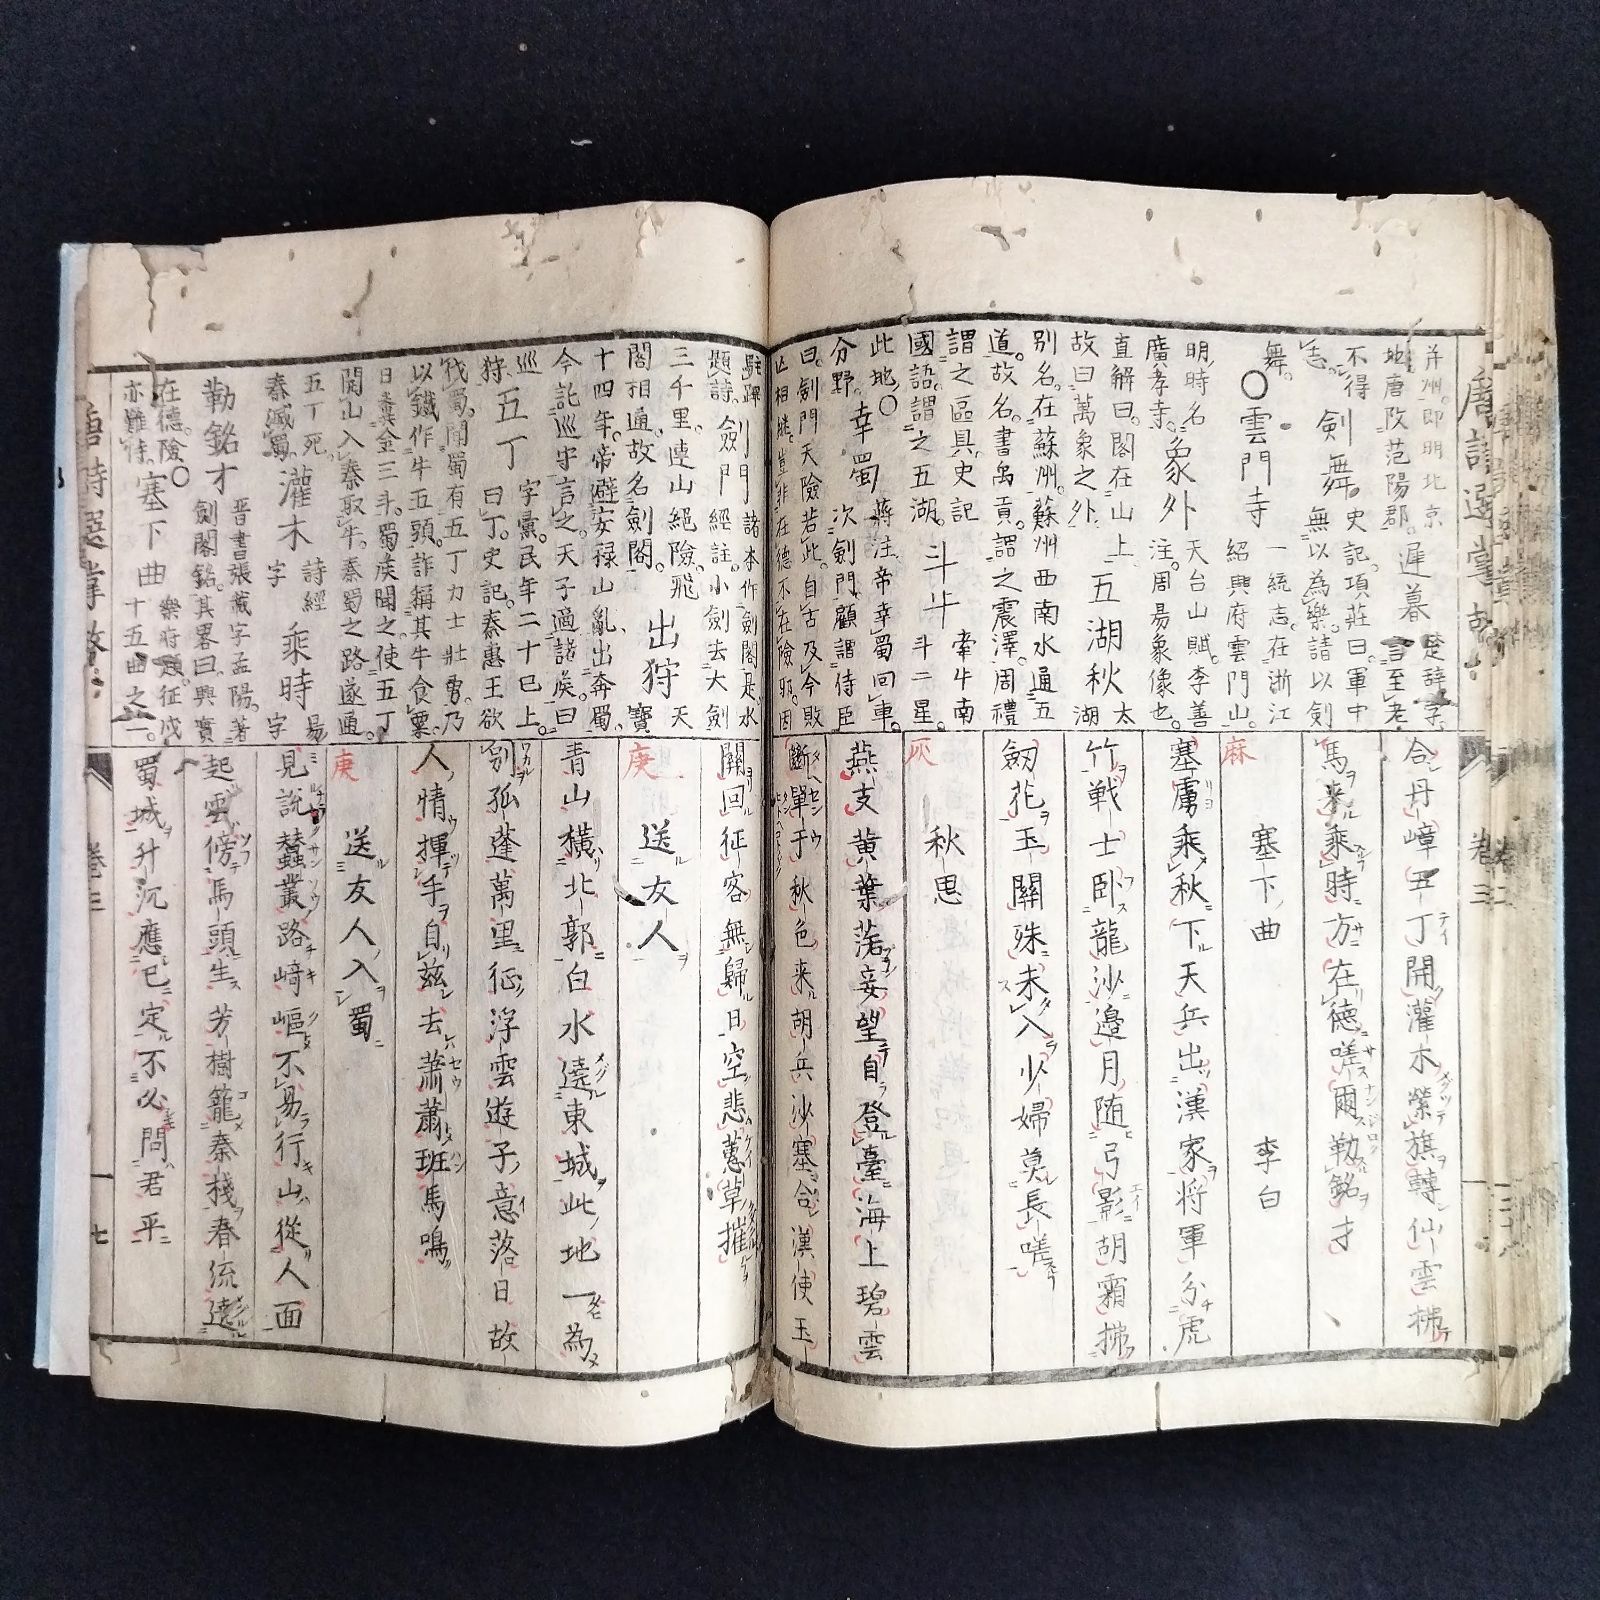 唐詩選掌故
卷三
并州即明北京
地唐改范陽郡遲暮楚辞
不得志劍舞史記項莊曰軍中無以為樂請以劍
舞○雲門寺一統志在浙江紹興府雲門山
明時名廣孝寺象外天台山賦李善注周易象像也
直解曰閣在山上故曰萬象之外五湖秋太湖
別名在蘇州蘇州西南水通五
道故名書禹貢謂之震澤周禮
謂之區具史記國語謂之五湖斗牛牽牛南斗二星
此地分野○幸蜀蔣注帝幸蜀回車次劍門顧謂侍臣
曰劍門天險若此自古及今敗
亡相継豈非在德不在險耶因
合丹嶂五丁開灌木縈旗轉仙雲拂
馬來乘時方在德嗟爾勒銘才
麻
塞下曲
李白
塞虜乘秋下天兵出漢家将軍分虎
竹戦士卧龍沙邊月随弓影胡霜拂
剱花玉關殊未入少婦莫長嗟
灰
秋思
燕支黄葉落妾望自登臺海上碧雲
断單于秋色来胡兵沙塞合漢使玉
駐蹕題詩劍門諸本作劍閣是水經註小劍去大劍
三千里連山絕險飛閣相通故名劍閣出狩天寶
十四年帝避安禄山亂出奔蜀
今託巡守言之天子適諸矦曰
巡狩五丁字彙民年二十巳上曰丁史記秦惠王欲
伐蜀聞蜀有五丁力士壮勇乃
以鐵作牛五頭詐稱其牛食粟
日糞金三斗蜀矦聞之使五丁
開山入秦取牛秦蜀之路遂通
五丁死秦滅蜀灌木詩經字乘時易字
勒銘才晋書張載字孟陽著劍閣銘其畧曰興實
在德險亦難恃○塞下曲樂府題征戍十五曲之一
關回征客無歸日空悲蕙草摧
庚
送友人
青山橫北郭白水遶東城此地一為
別孤蓬萬里征浮雲遊子意落日故
人情揮手自茲去蕭蕭班馬鳴
庚
送友人入蜀
見説蠶叢路崎嶇不易行山從人面
起雲傍馬頭生芳樹籠秦棧春流遶
蜀城升沉應已定不必問君平
唐詩選掌故
卷三
一七